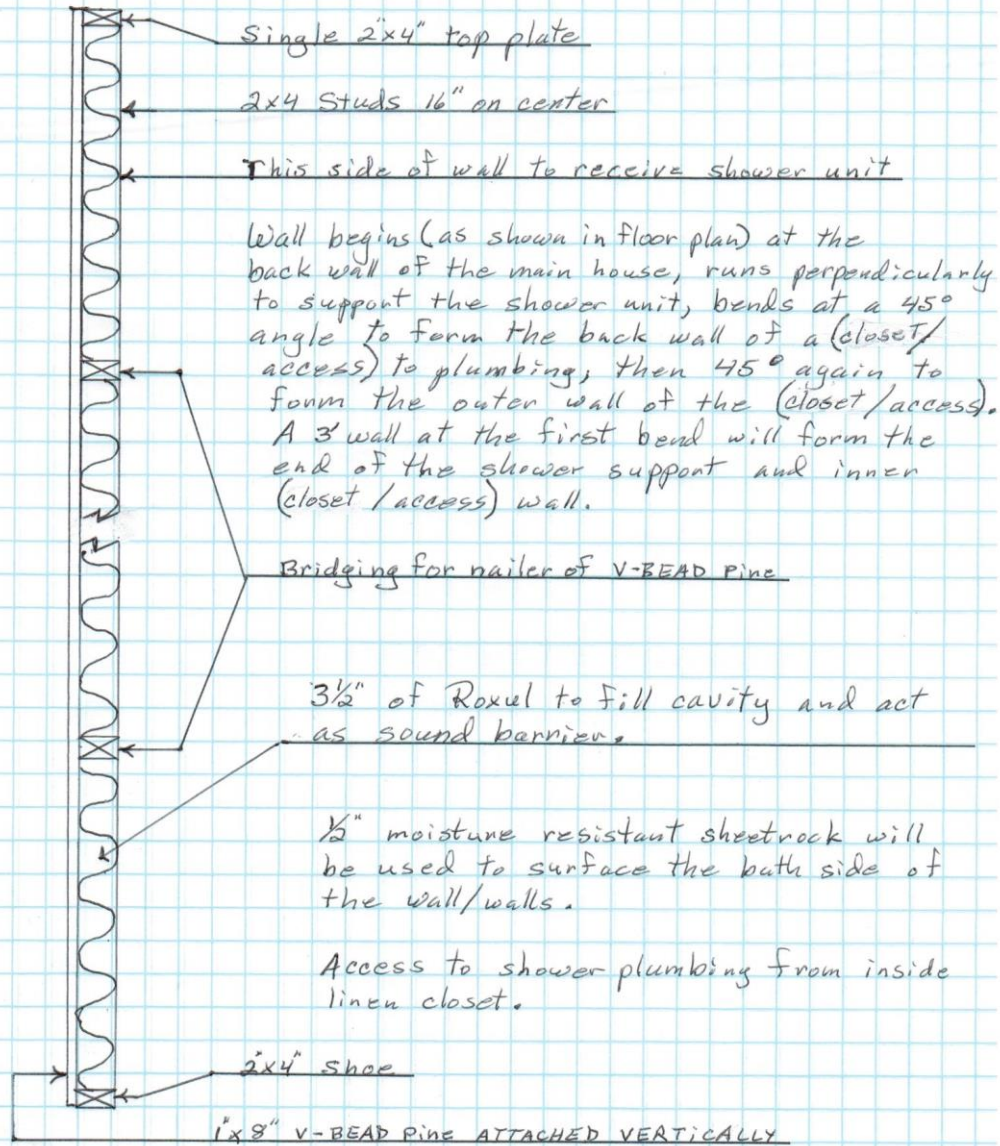 Single 2"x4" top plate
2x4 Studs 16" on center
This side of wall to receive shower unit
Wall begins (as shown in floor plan) at the
back wall of the main house, runs perpendicularly
to support the shower unit, bends at a 45°
angle to form the back wall of a (closet/
access) to plumbing, then 45° again to
form the outer wall of the (closet/access).
A 3' wall at the first bend will form the
end of the shower support and inner
(closet/access) wall.
Bridging for nailer of V-BEAD Pine
3½" of Roxul to fill cavity and act
as sound barrier.
½" moisture resistant sheetrock will
be used to surface the bath side of
the wall/walls.
Access to shower plumbing from inside
linen closet.
2"x4" Shoe
1"x8" V-BEAD Pine ATTACHED VERTICALLY